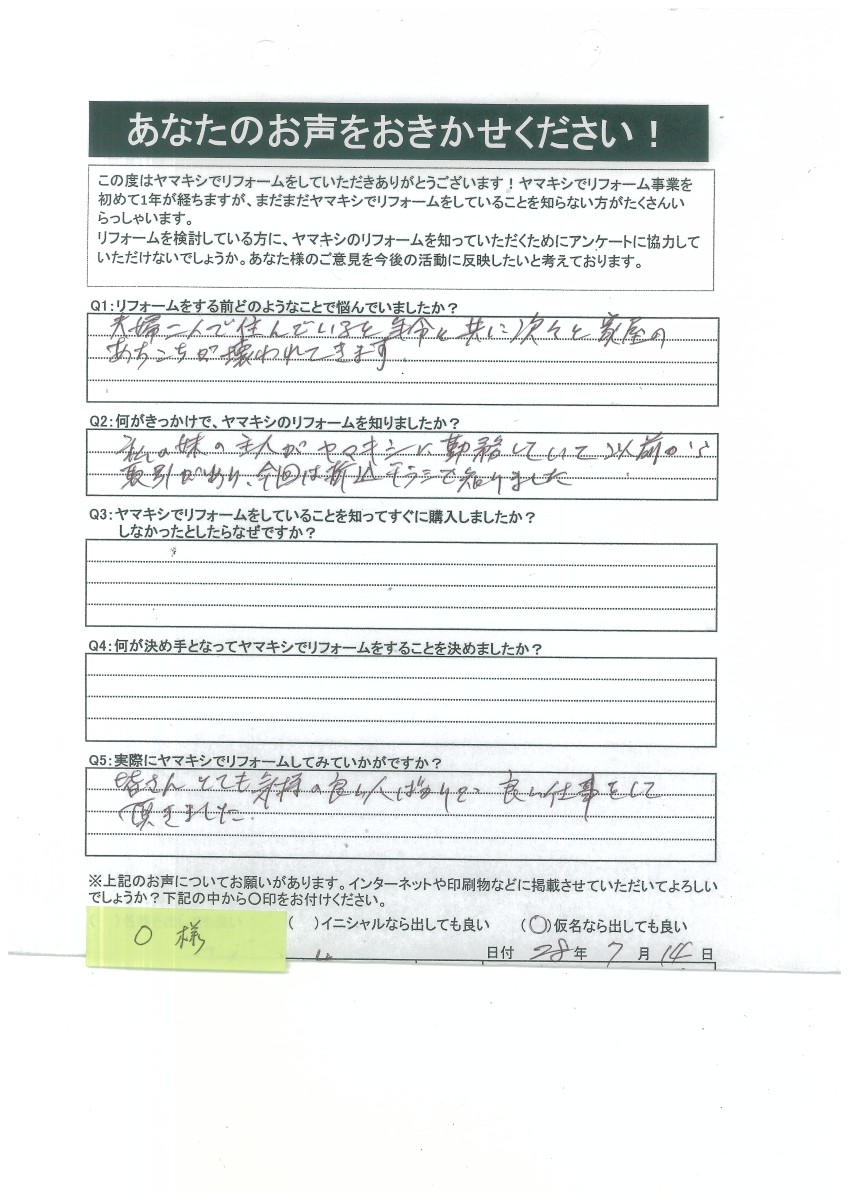 あなたのお声をおきかせください！
この度はヤマキシでリフォームをしていただきありがとうございます！ヤマキシでリフォーム事業を
初めて1年が経ちますが、まだまだヤマキシでリフォームをしていることを知らない方がたくさんい
らっしゃいます。
リフォームを検討している方に、ヤマキシのリフォームを知っていただくためにアンケートに協力して
いただけないでしょうか。あなた様のご意見を今後の活動に反映したいと考えております。
Q1：リフォームをする前どのようなことで悩んでいましたか？
夫婦二人で住んでいると年令と共に次々と家屋の
あちこちが壊われてきます。
Q2：何がきっかけで、ヤマキシのリフォームを知りましたか？
私の妹の主人がヤマキシに勤務していて以前から
取引があり、今回は折込チラシで知りました
Q3：ヤマキシでリフォームをしていることを知ってすぐに購入しましたか？
しなかったとしたらなぜですか？
Q4：何が決め手となってヤマキシでリフォームをすることを決めましたか？
Q5：実際にヤマキシでリフォームしてみていかがですか？
皆さんとても気持の良い人ばかりで 良い仕事をして
頂きました。
※上記のお声についてお願いがあります。インターネットや印刷物などに掲載させていただいてよろしい
でしょうか？下記の中から〇印をお付けください。
( )イニシャルなら出しても良い (〇)仮名なら出しても良い
O 様
日付 28年 7月 14日